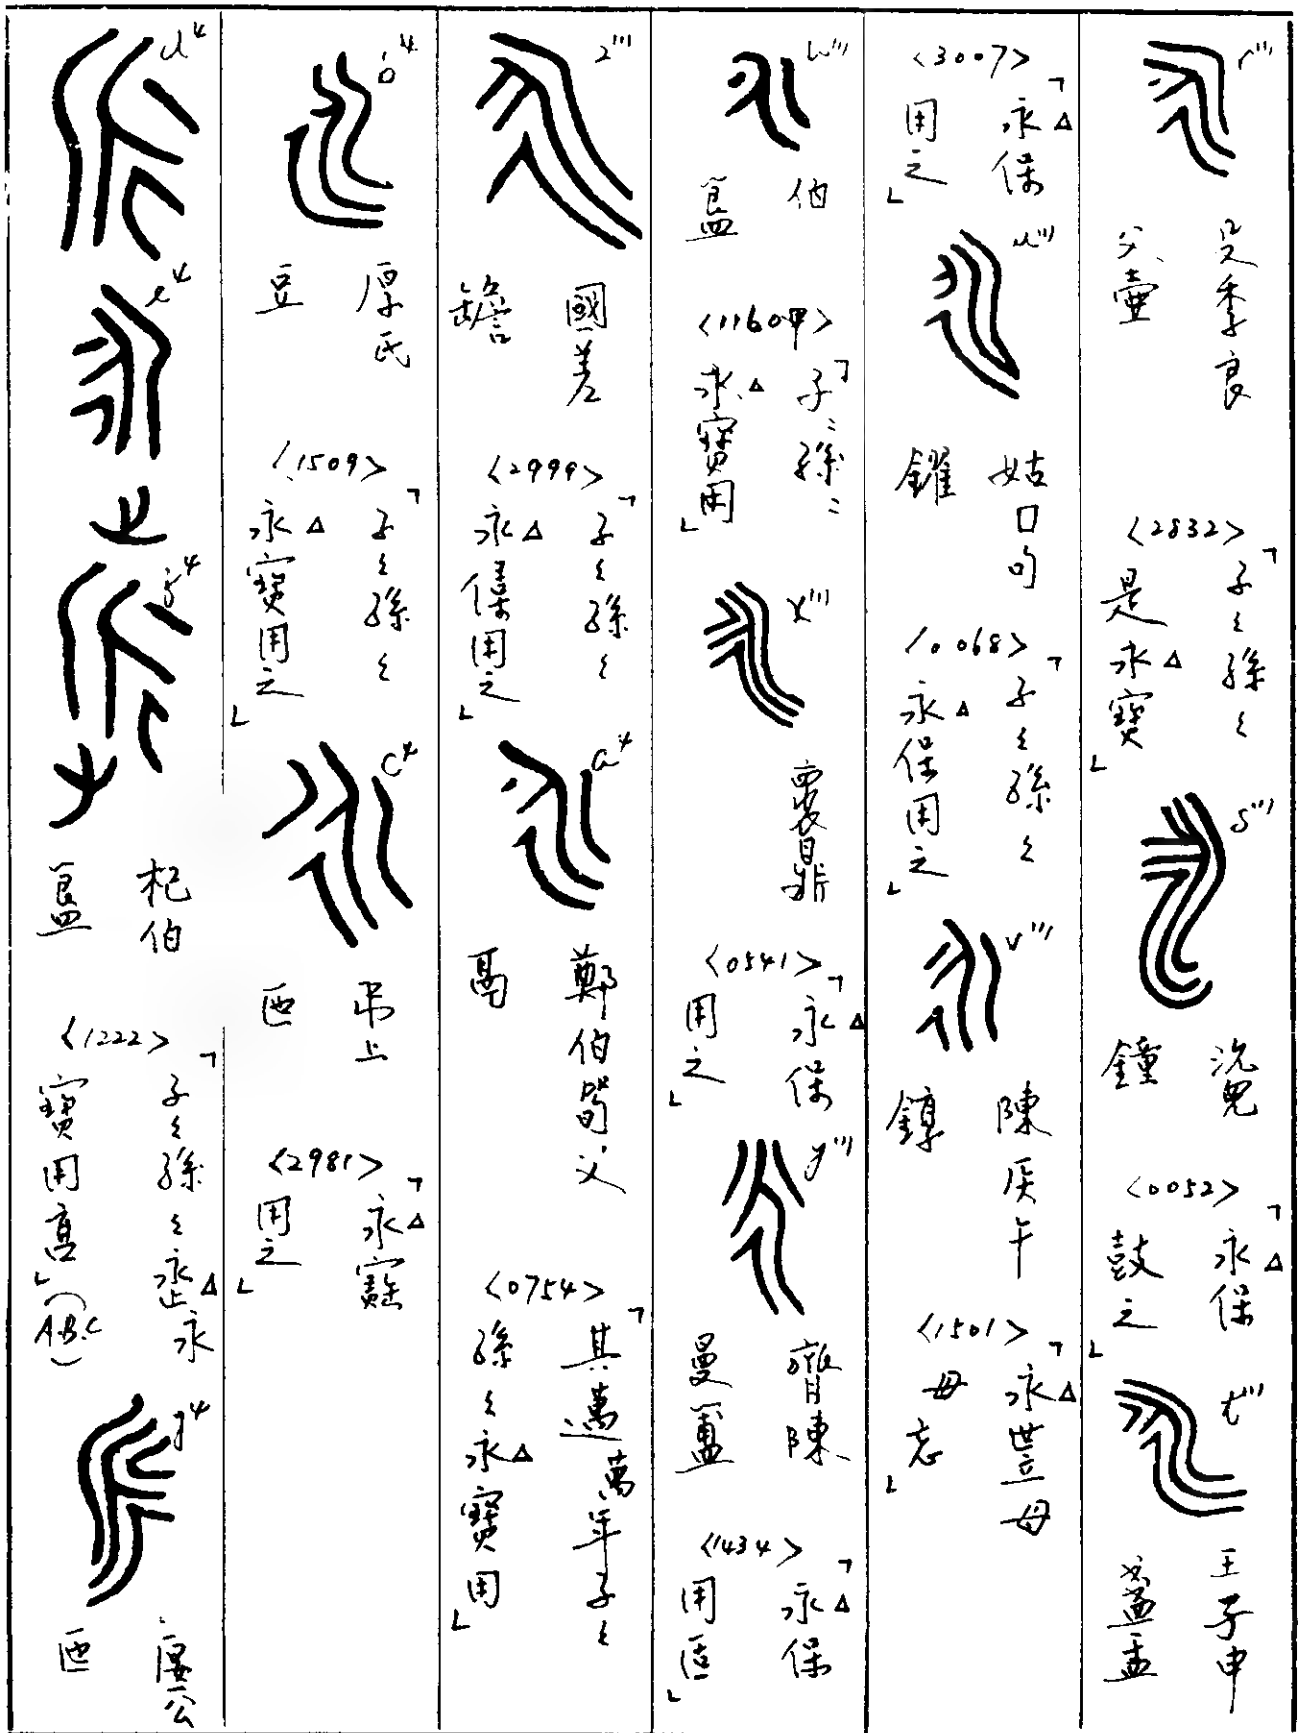 r'''
𠱾季良
父壷
<2832>
「子〻孫〻
是永△寶」
s'''
沇兒
鐘
<0052>
「永△保
鼓之」
t'''
王子申
盞盂
<3007>
「永△保
用之」
u'''
姑口句
鑃
<0068>
「子〻孫〻
永△保用之」
v'''
陳医午
錞
<1501>
「永△世母
母忘」
w'''
伯
簋
<1160甲>
「子〻孫〻
永△寶用」
x'''
褱鼎
<0541>
「永△保
用之」
y'''
齊陳
曼簠
<1434>
「永△保
用𠤳」
z'''
國差
𦉜
<2999>
「子〻孫〻
永△保用之」
a⁴
鄭伯筍父
鬲
<0754>
「其萬邁年子〻
孫〻永△寶用」
b⁴
厚氏
豆
<1509>
「子〻孫〻
永△寶用之」
c⁴
弔上
匜
<2981>
「永△寶
用之」
d⁴
e⁴
f⁴
杞伯
簋
<1222>
「子〻孫〻永△永
寶用亯」(A.B.C)
g⁴
公
匜